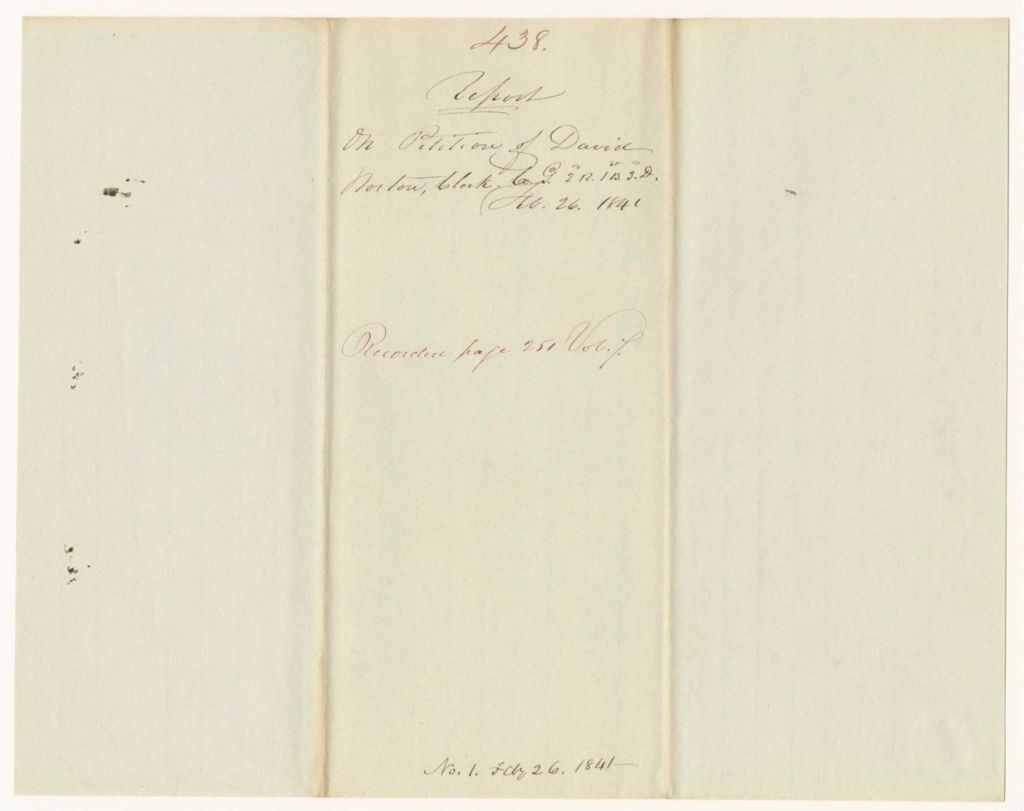 438.
Report
On Petition of David
Norton, Clerk Co. G. 2d R. 1st B. 3d D.
Feb. 26. 1841
Recorded page 251 Vol. 7.
No. 1. Feby 26. 1841